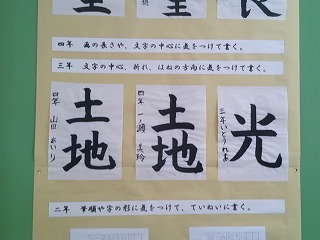 四年 画の長さや、文字の中心に気をつけて書く。
三年 文字の中心、折れ、はねの方向に気をつけて書く。
光
三年 いとうれいよ
土地
四年 一ノ瀬 美玲
土地
四年 山田 あいり
二年 筆順や字の形に気をつけて、ていねいに書く。